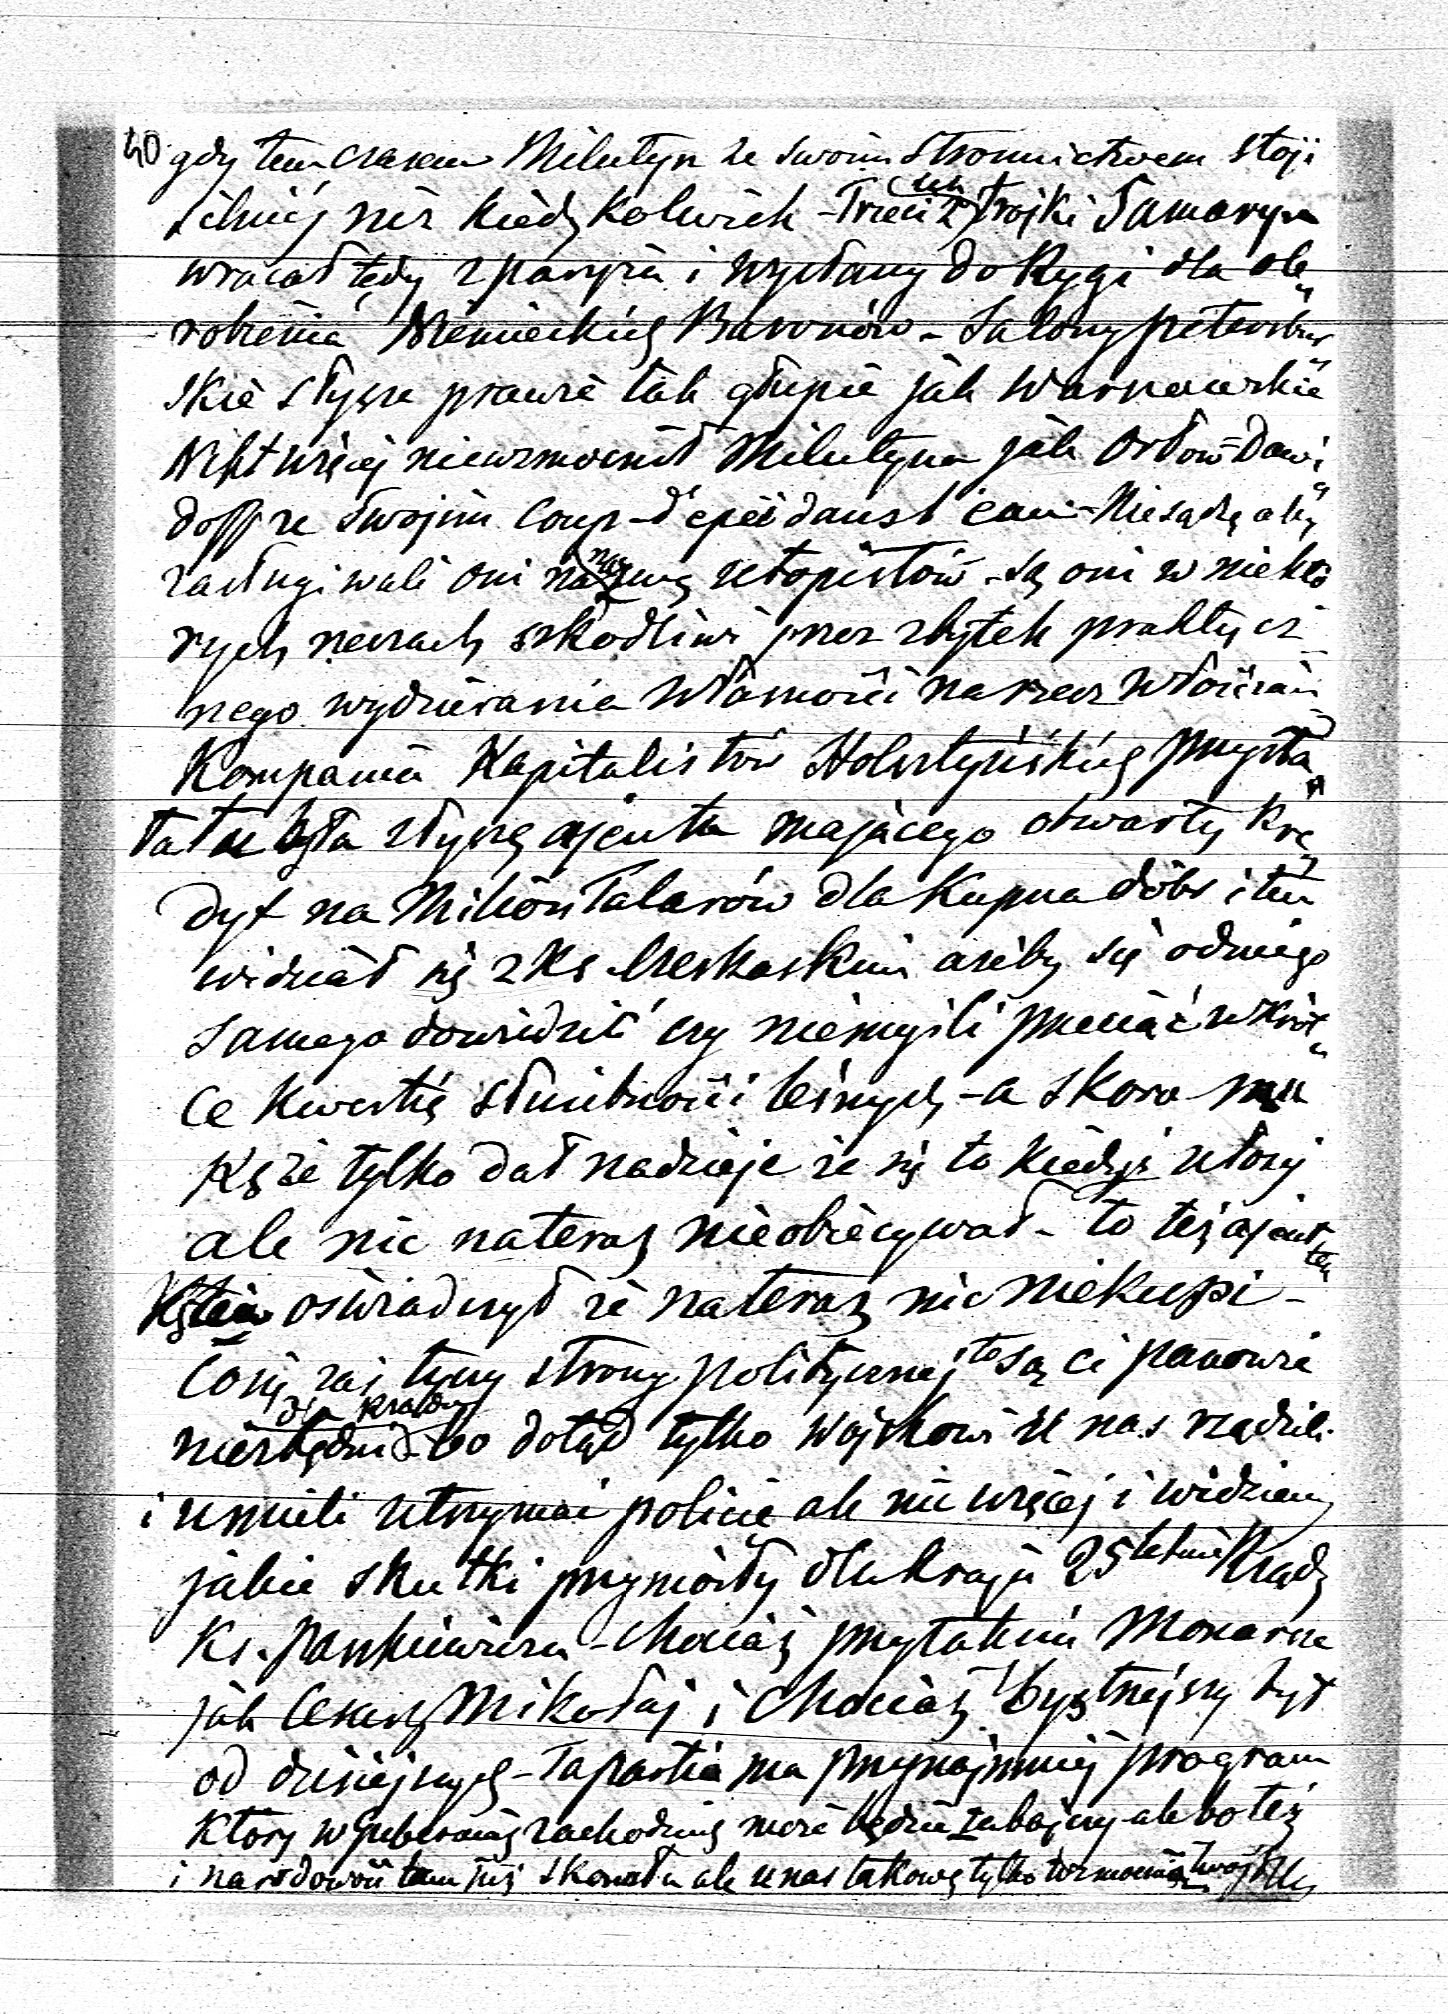 40 gdy tem czasem Milutyn ze swoim Stronnictwem stoji
silniéj niż kiedykolwiek - Trzeci z téh trojki Samaryn
wracał tędy z paryża i wysłany do Rygi dla ob„
robienia Niemieckich Baronów - Salony petersbur„
skie słyszę prawie tak głupie jak Warszawskie
Nikt więcéj niewzmocnił Milutyna jak Orłow=Dawi„
doff ze swojim Coup-d'épée dans l'eau - Niesądzę aby
zasługiwali oni na nazwę utopistów - są oni w niektó
rych rzeczach szkodliwi przez zbytek praktycz
nego wydzierania własności na rzecz włościan
Kompania Kapitalistów Holsztyńskich przysła„
ła tu była słyszę ajenta mającego otwarty kre„
dyt na Milion Talarów dla kupna dóbr i ten
widział się z Ks Czerkaskim ażeby się od niego
samego dowiedzić czy niemyśli przeciąć w krót„
ce kwestię służebności leśnych - a skoro mu
Kże tylko dał nadzieje że się to kiedyś ułoży
ale nic nateraz nieobiecywał - to też ajent ten
oświadczył że nateraz nic niekupi -
Cosię zaś tyczy strony politycznéj to są ci panowie
dla kraju niezbędni - bo dotąd tylko wojskowi u nas rządzili
i umieli utrzymać policię ale nic więcéj i widziemy
jakie skutki przyniosły dla kraju 25 letnie Rządy
Ks. Paskiewicza - chociaż przy takim Monarsze
jak Cesarz Mikołaj i chociaż bystrzejszy był
od dzisiejszych - Ta partia ma przynajmniéj program
który w guberniach zachodnich może będzie zabójczy ale bo też
i narodowość tam już skonała ale u nas takową tylko wzmocnią